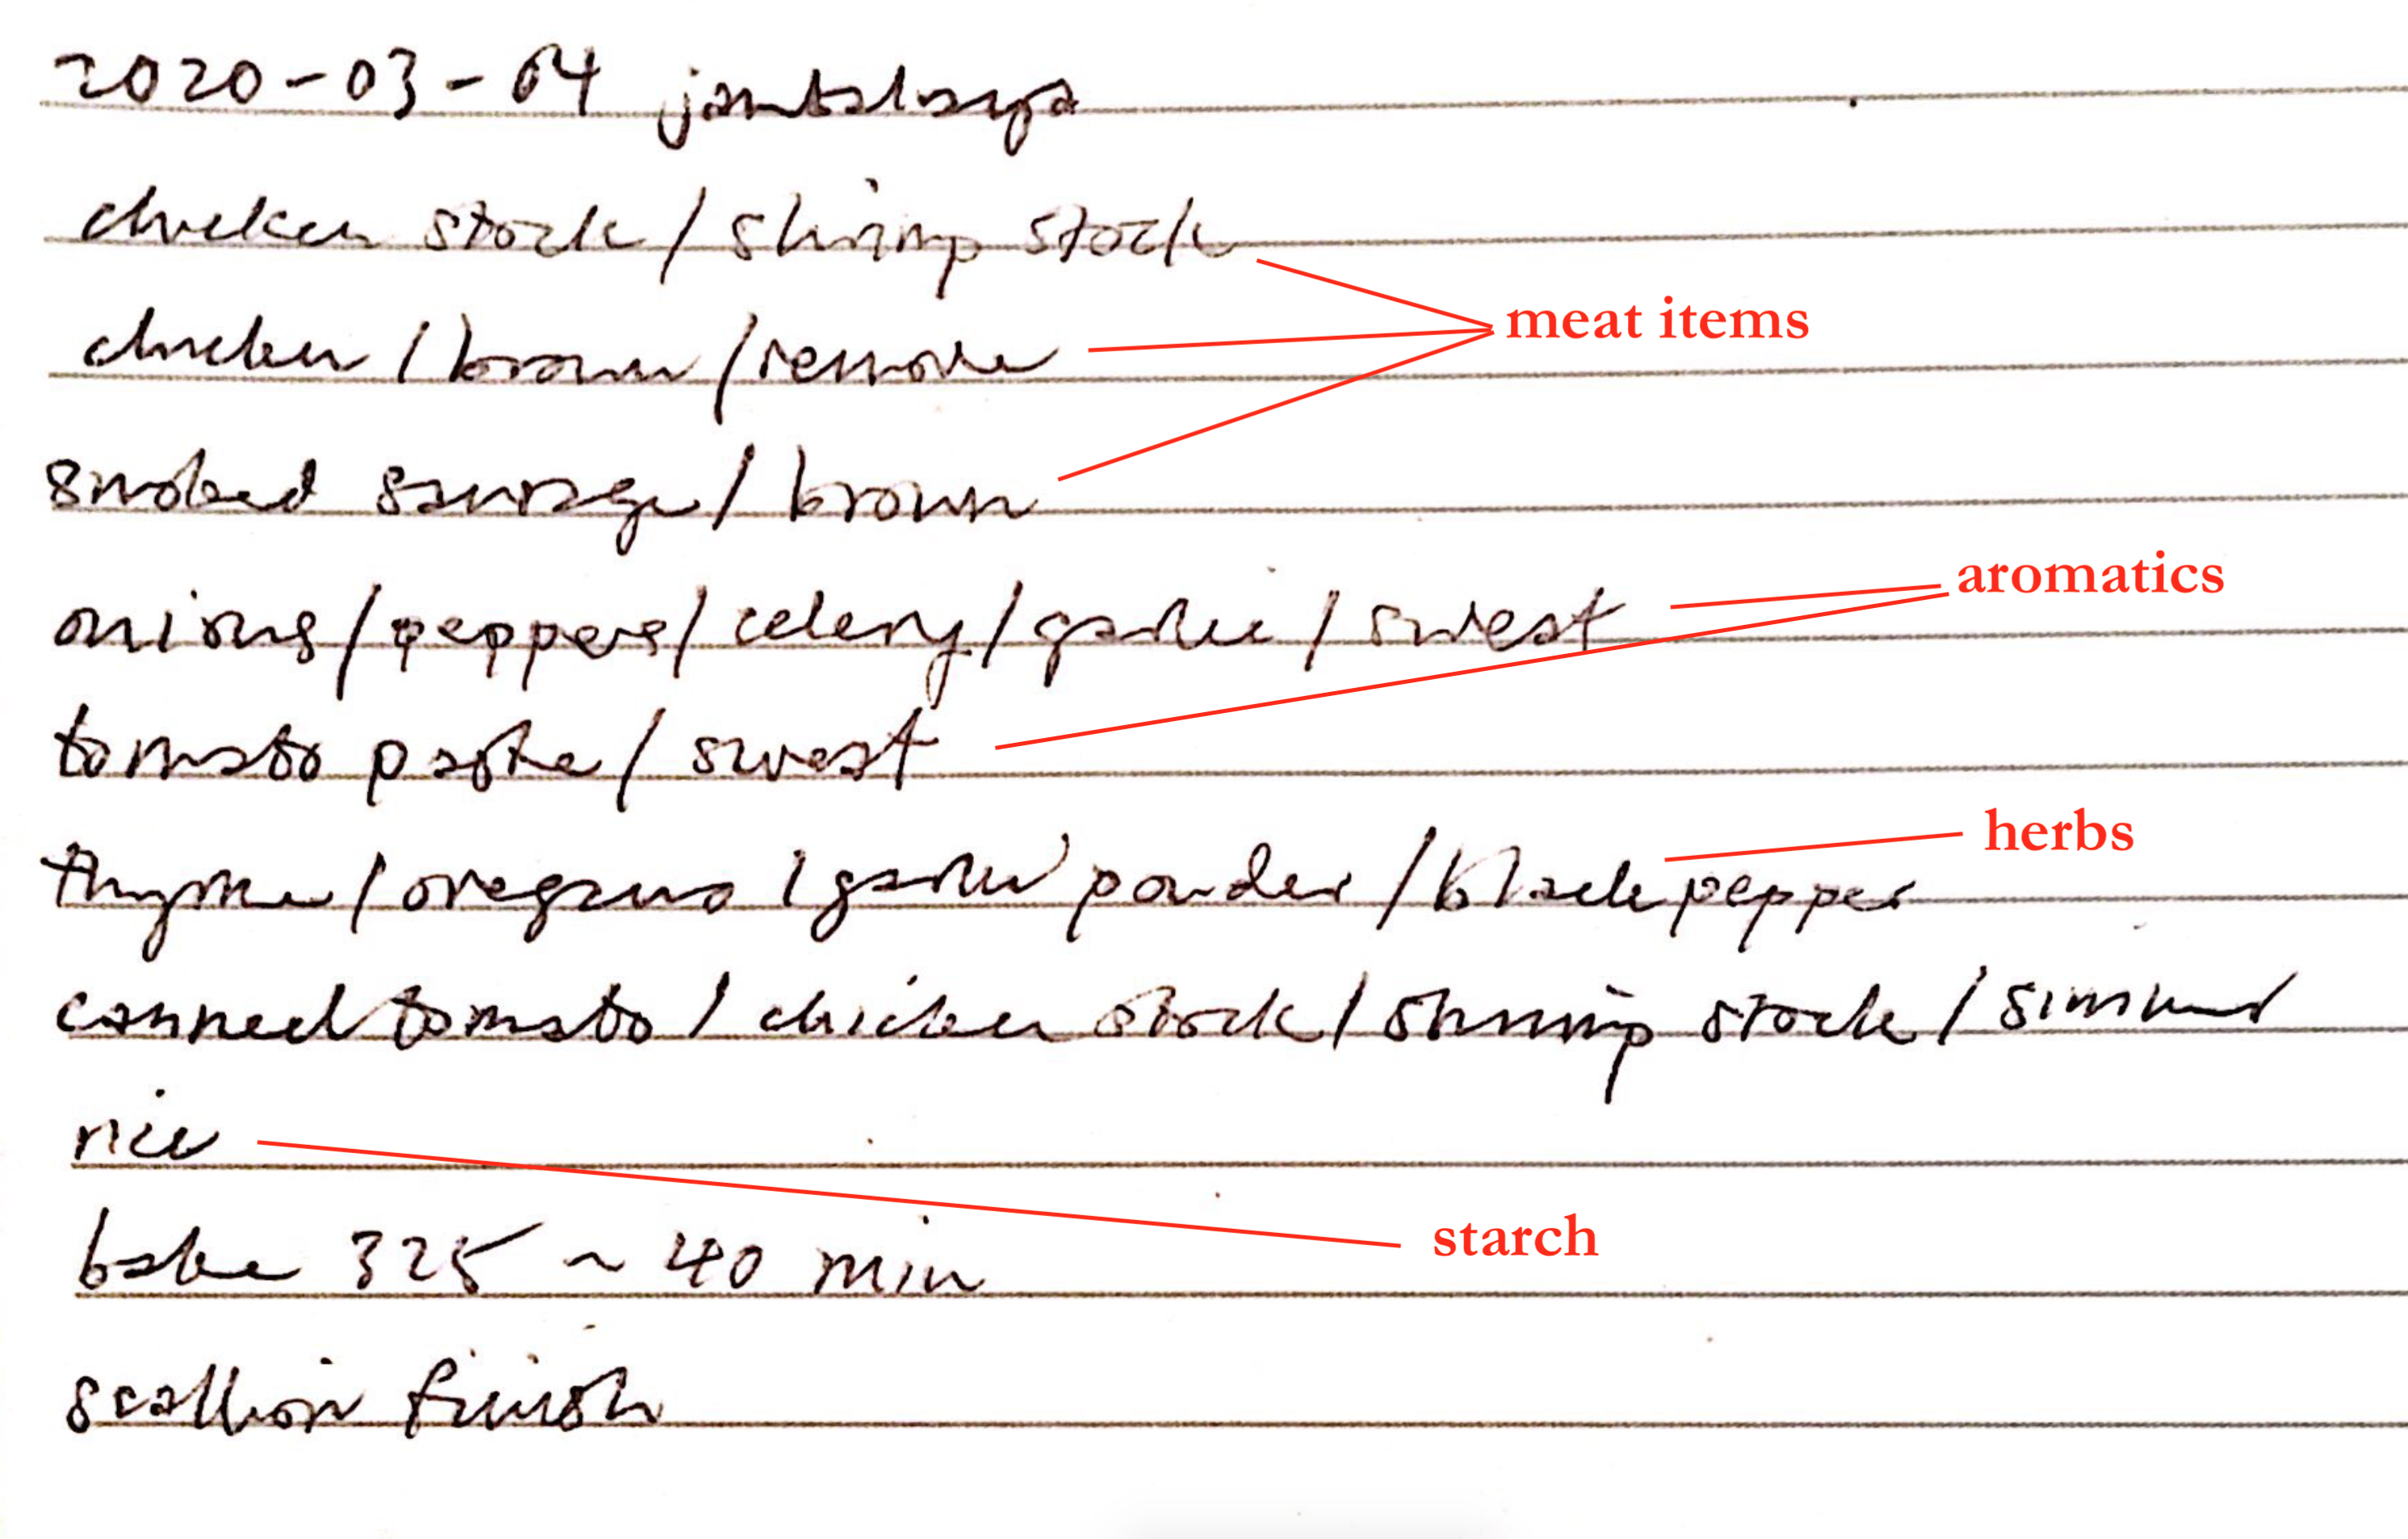 2020-03-04 jambalaya
chicken stock / shrimp stock
meat items
chicken / brown / remove
smoked sausage / brown
aromatics
onions / peppers / celery / garlic / sweat
tomato paste / sweat
herbs
thyme / oregano / garlic powder / black pepper
canned tomato / chicken stock / shrimp stock / simmer
rice
starch
bake 325 ~ 40 min
scallion finish